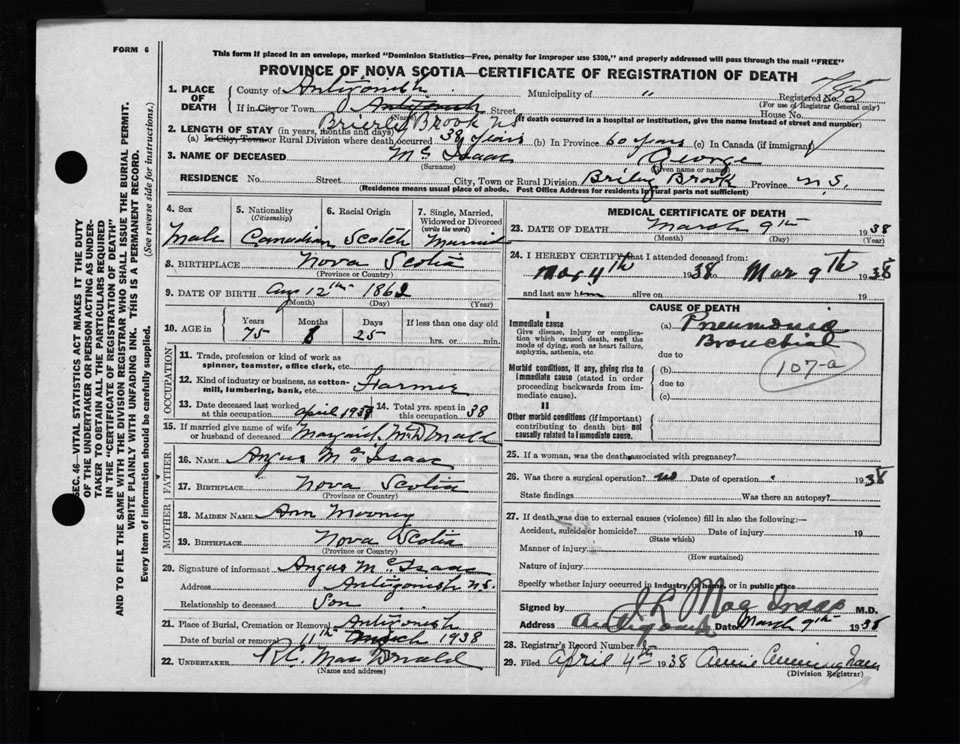 FORM 6
This form if placed in an envelope, marked "Dominion Statistics—Free, penalty for improper use $300," and properly addressed will pass through the mail "FREE"
PROVINCE OF NOVA SCOTIA—CERTIFICATE OF REGISTRATION OF DEATH
1. PLACE OF DEATH
County of Antigonish Municipality of " Registered No. 785
(For use of Registrar General only)
If in City or Town Antigonish Street House No.
(Name) (If death occurred in a hospital or institution, give the name instead of street and number)
Brierly Brook N.S
2. LENGTH OF STAY (in years, months and days)
(a) In City, Town or Rural Division where death occurred 38 years (b) In Province 60 years (c) In Canada (if immigrant)
3. NAME OF DECEASED Mc Isaac George
(Surname) (Given name or names)
RESIDENCE No. Street City, Town or Rural Division Briley Brook Province N.S.
(Residence means usual place of abode. Post Office Address for residents in rural parts not sufficient)
4. Sex 5. Nationality (Citizenship) 6. Racial Origin 7. Single, Married, Widowed or Divorced (write the word)
Male Canadian Scotch Married
8. BIRTHPLACE Nova Scotia
(Province or Country)
9. DATE OF BIRTH Aug 12th 1862
(Month) (Day) (Year)
10. AGE in Years Months Days If less than one day old
75 6 25 hrs. or min.
OCCUPATION
11. Trade, profession or kind of work as spinner, teamster, office clerk, etc.
12. Kind of industry or business, as cotton-mill, lumbering, bank, etc. Farmer
13. Date deceased last worked at this occupation April 1937 14. Total yrs. spent in this occupation 38
15. If married give name of wife or husband of deceased Margaret McDonald
FATHER
16. NAME Angus Mc Isaac
17. BIRTHPLACE Nova Scotia
(Province or Country)
MOTHER
18. MAIDEN NAME Ann Mooney
19. BIRTHPLACE Nova Scotia
(Province or Country)
20. Signature of informant Angus Mc Isaac
Address Antigonish N.S.
Relationship to deceased Son
21. Place of Burial, Cremation or Removal Antigonish
Date of burial or removal 11th March 1938
22. UNDERTAKER R.C. MacDonald
(Name and address)
MEDICAL CERTIFICATE OF DEATH
23. DATE OF DEATH March 9th 1938
(Month) (Day) (Year)
24. I HEREBY CERTIFY that I attended deceased from:
Mar 4th 1938 to Mar 9th 1938
and last saw him alive on 19
CAUSE OF DEATH
I
Immediate cause (a) Pneumonia
Give disease, injury or complication which caused death, not the mode of dying, such as heart failure, asphyxia, asthenia, etc. Bronchial
due to
107-a
Morbid conditions, if any, giving rise to immediate cause (stated in order proceeding backwards from immediate cause). (b)
due to
(c)
II
Other morbid conditions (if important) contributing to death but not causally related to immediate cause.
25. If a woman, was the death associated with pregnancy?
26. Was there a surgical operation? no Date of operation 1938
State findings Was there an autopsy?
27. If death was due to external causes (violence) fill in also the following:—
Accident, suicide or homicide? Date of injury 19
(State which)
Manner of injury
(How sustained)
Nature of injury
Specify whether injury occurred in industry, in home, or in public place
Signed by MacIsaac M.D.
Address Antigonish Date March 9th 1938
28. Registrar's Record Number
29. Filed April 4th 1938 Annie Cunningham
(Division Registrar)
SEC. 46—VITAL STATISTICS ACT MAKES IT THE DUTY
OF THE UNDERTAKER OR PERSON ACTING AS UNDER-
TAKER TO OBTAIN ALL THE PARTICULARS REQUIRED
IN THE "CERTIFICATE OF REGISTRATION OF DEATH"
AND TO FILE THE SAME WITH THE DIVISION REGISTRAR WHO SHALL ISSUE THE BURIAL PERMIT.
WRITE PLAINLY WITH UNFADING INK. THIS IS A PERMANENT RECORD.
Every item of information should be carefully supplied. (See reverse side for instructions.)